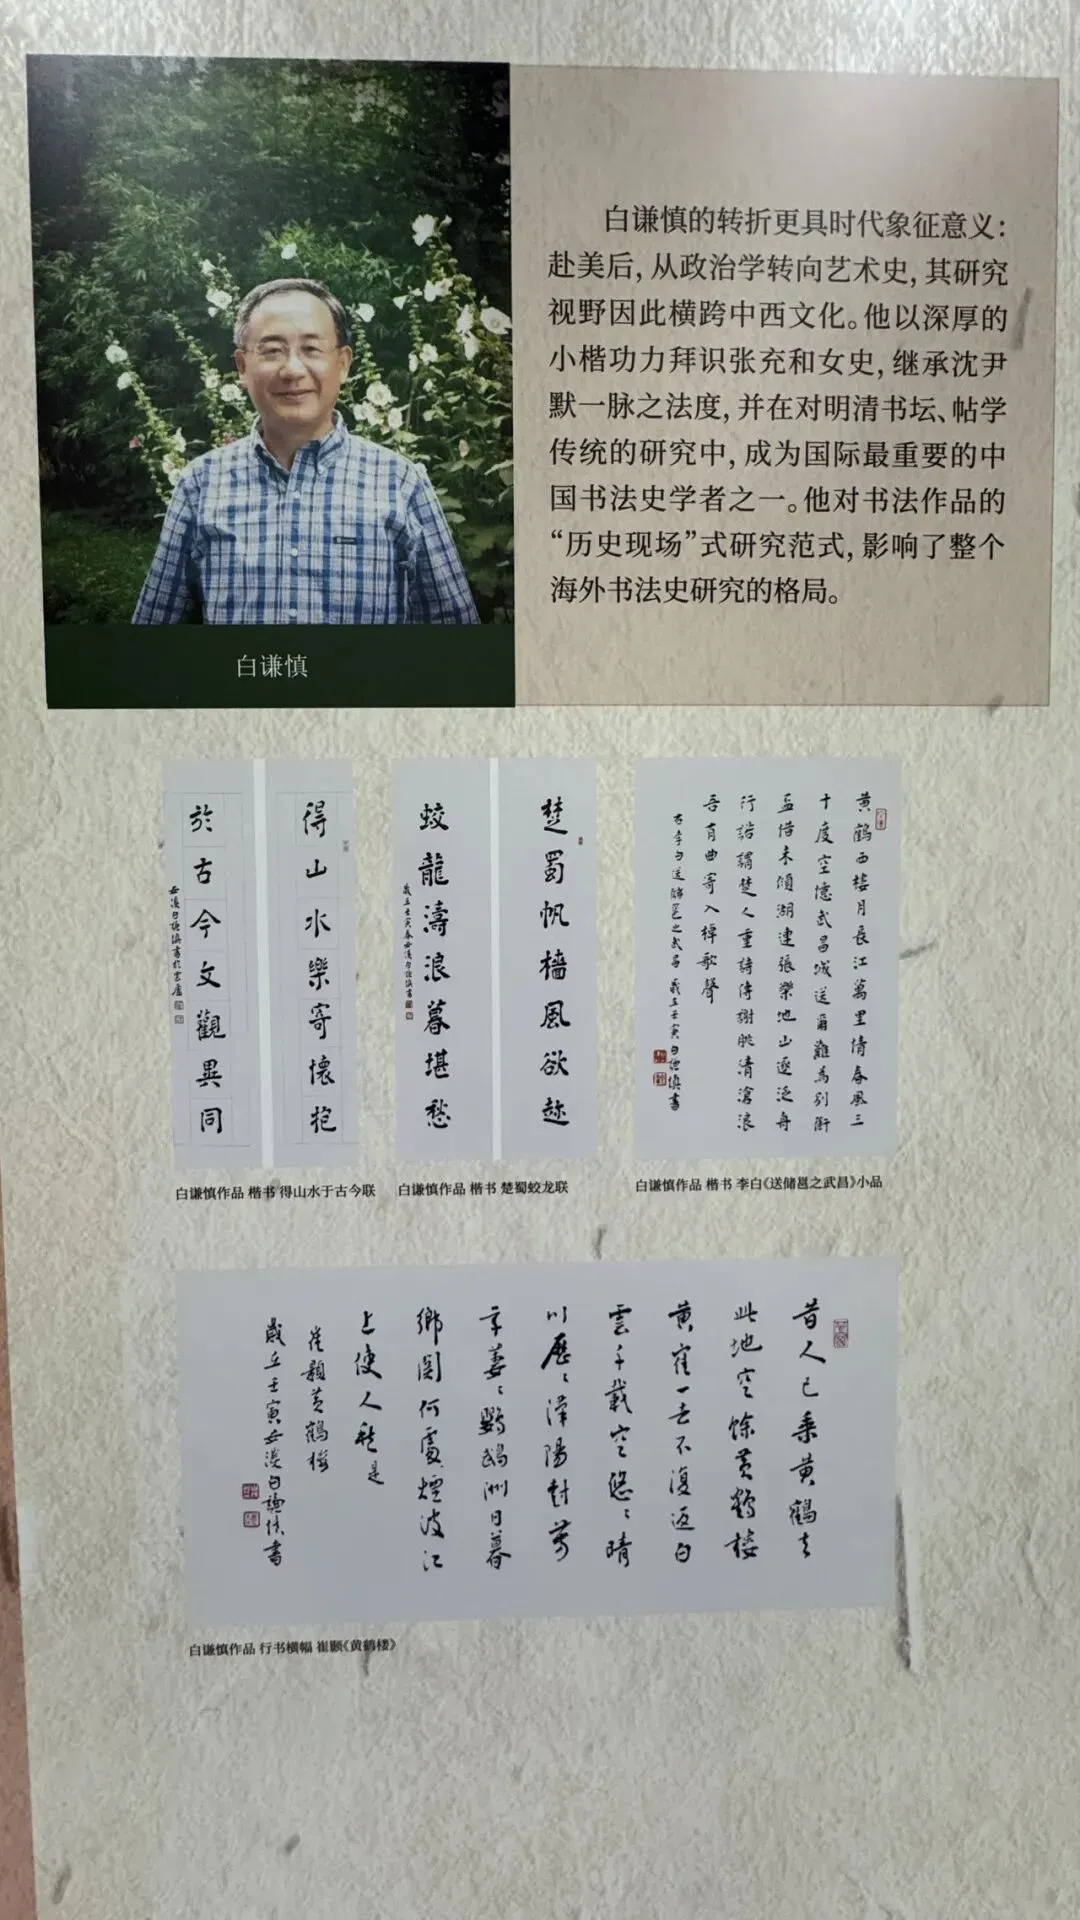 白谦慎的转折更具时代象征意义：
赴美后，从政治学转向艺术史，其研究
视野因此横跨中西文化。他以深厚的
小楷功力拜识张充和女史，继承沈尹
默一脉之法度，并在对明清书坛、帖学
传统的研究中，成为国际最重要的中
国书法史学者之一。他对书法作品的
“历史现场”式研究范式，影响了整个
海外书法史研究的格局。
白谦慎
得山水樂寄懷抱
於古今文觀異同
安溪白謙慎書於雲廬
白谦慎作品 楷书 得山水于古今联
楚蜀帆檣風欲趂
蛟龍濤浪暮堪愁
歲在壬寅春安溪白謙慎書
白谦慎作品 楷书 楚蜀蛟龙联
黃鶴西樓月長江萬里情春風三
十度空憶武昌城送爾難為別銜
盃惜未傾湖連張樂地山逐泛舟
行諾謂楚人重詩傳謝朓清滄浪
吾有曲寄入棹歌聲
右李白送儲邕之武昌 歲在壬寅白謙慎書
白谦慎作品 楷书 李白《送储邕之武昌》小品
昔人已乘黃鶴去
此地空餘黃鶴樓
黃寉一去不復返白
雲千載空悠〻晴
川歷〻漢陽樹芳
草萋〻鸚鵡洲日暮
鄉關何處煙波江
上使人愁
崔顥黃鶴樓
歲在壬寅安溪白謙慎書
白谦慎作品 行书横幅 崔颢《黄鹤楼》